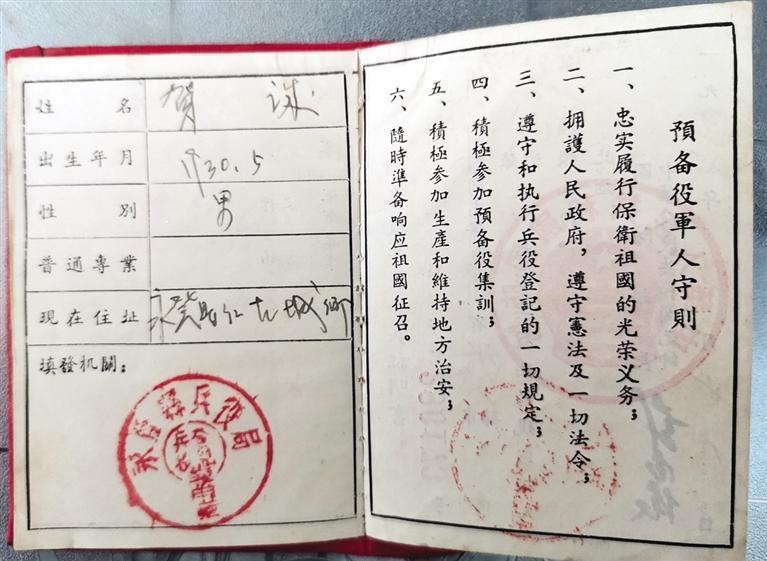 姓名 贺
出生年月 1930.5
性别 男
普通專業
现在住址
填發机關：
兵役局
預备役軍人守則
一、忠实履行保衛祖國的光荣义务；
二、拥護人民政府，遵守憲法及一切法令；
三、遵守和执行兵役登記的一切規定；
四、積極参加預备役集訓；
五、積極参加生產和維持地方治安；
六、隨時準备响应祖國征召。